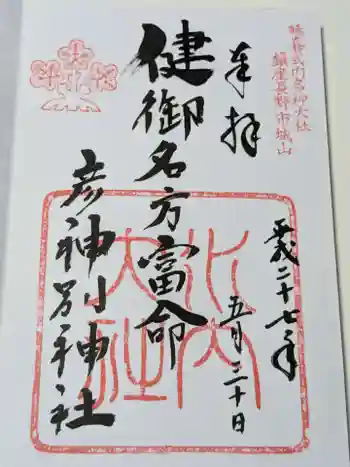 延喜式内名神大社
鎮座長野市城山
奉拝
平成二十七年
五月三十日
健御名方富命
彦神別神社
水内大社